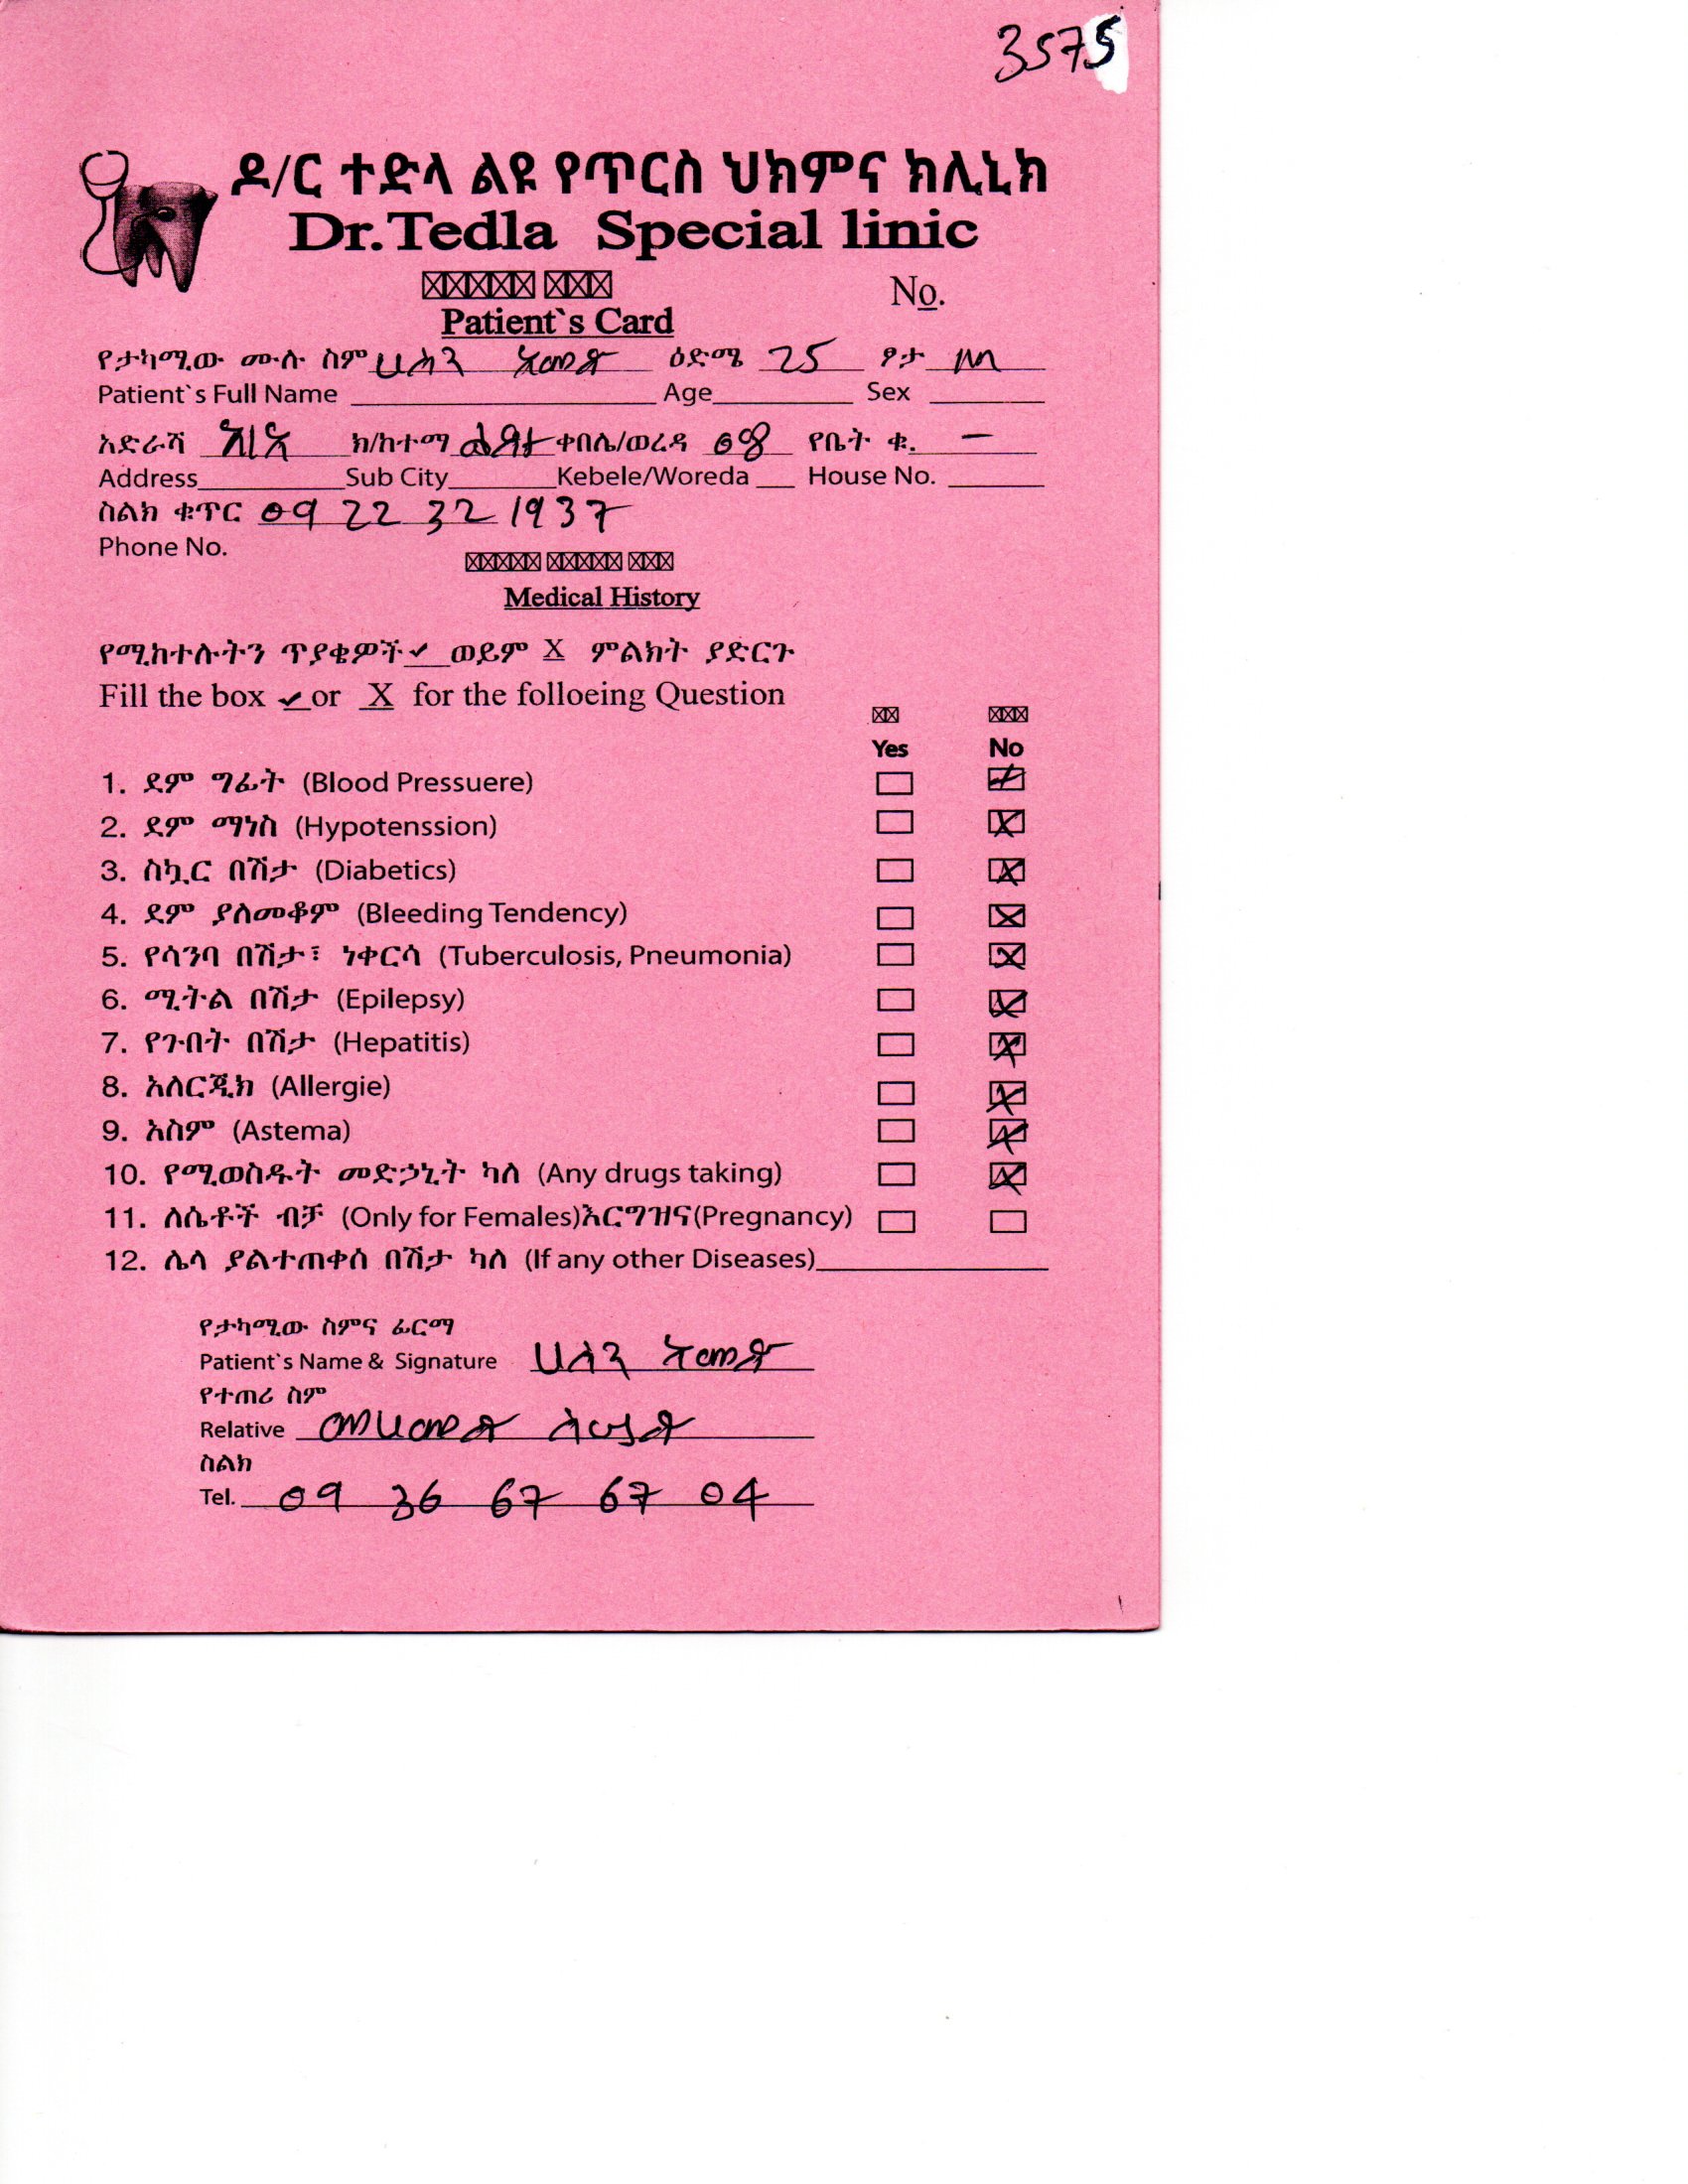 3575
ዶ/ር ተድላ ልዩ የጥርስ ህክምና ክሊኒክ
Dr.Tedla Special linic
No.
Patient`s Card
የታካሚው ሙሉ ስም ሀሰን አመዶ ዕድሜ 25 ፆታ ወ
Patient`s Full Name Age Sex
አድራሻ አ/አ ክ/ከተማ ልደታ ቀበሌ/ወረዳ 08 የቤት ቁ. –
Address Sub City Kebele/Woreda House No.
ስልክ ቁጥር 09 22 32 1937
Phone No.
Medical History
የሚከተሉትን ጥያቄዎች ✓ ወይም X ምልክት ያድርጉ
Fill the box ✓ or X for the folloeing Question
Yes No
1. ደም ግፊት (Blood Pressuere)
2. ደም ማነስ (Hypotenssion)
3. ስኳር በሽታ (Diabetics)
4. ደም ያለመቆም (Bleeding Tendency)
5. የሳንባ በሽታ፣ ነቀርሳ (Tuberculosis, Pneumonia)
6. ሚትል በሽታ (Epilepsy)
7. የጉበት በሽታ (Hepatitis)
8. አለርጂክ (Allergie)
9. አስም (Astema)
10. የሚወስዱት መድኃኒት ካለ (Any drugs taking)
11. ለሴቶች ብቻ (Only for Females)እርግዝና(Pregnancy)
12. ሌላ ያልተጠቀሰ በሽታ ካለ (If any other Diseases)
የታካሚው ስምና ፊርማ
Patient`s Name & Signature ሀሰን አመዶ
የተጠሪ ስም
Relative መሀመድ
ስልክ
Tel. 09 36 67 67 04